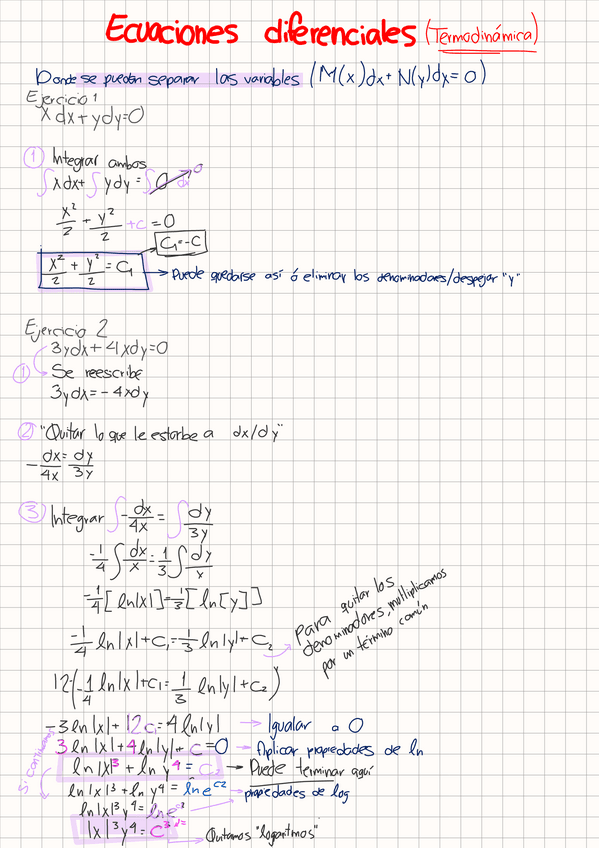 Ecuaciones diferenciales (Termodinámica)
Donde se puedan separar las variables (M(x)dx + N(y)dy = 0)
Ejercicio 1
x dx + y dy = 0
① Integrar ambos
∫x dx + ∫y dy = ∫0 dx → 0
x²/2 + y²/2 + C = 0
C₁ = -C
x²/2 + y²/2 = C₁ → Puede quedarse así ó eliminar los denominadores/despejar "y"
Ejercicio 2
3y dx + 4x dy = 0
① Se reescribe
3y dx = -4x dy
② "Quitar lo que le estorbe a dx/dy"
-dx/4x = dy/3y
③ Integrar ∫-dx/4x = ∫dy/3y
-1/4 ∫dx/x = 1/3 ∫dy/y
-1/4[ln|x|] = 1/3[ln[y]]
-1/4 ln|x| + C₁ = 1/3 ln|y| + C₂
Para quitar los
denominadores, multiplicamos
por un término común
12(-1/4 ln|x| + C₁ = 1/3 ln|y| + C₂)
-3ln|x| + 12C = 4ln|y| → Igualar a 0
3ln|x| + 4ln|y| + C = 0 → Aplicar propiedades de ln
ln|x|³ + ln y⁴ = C₂ → Puede terminar aquí
Si continuamos
ln|x|³ + ln y⁴ = ln e^C2 → propiedades de log
ln|x|³y⁴ = ln e
|x|³y⁴ = C
Quitamos "logaritmos"